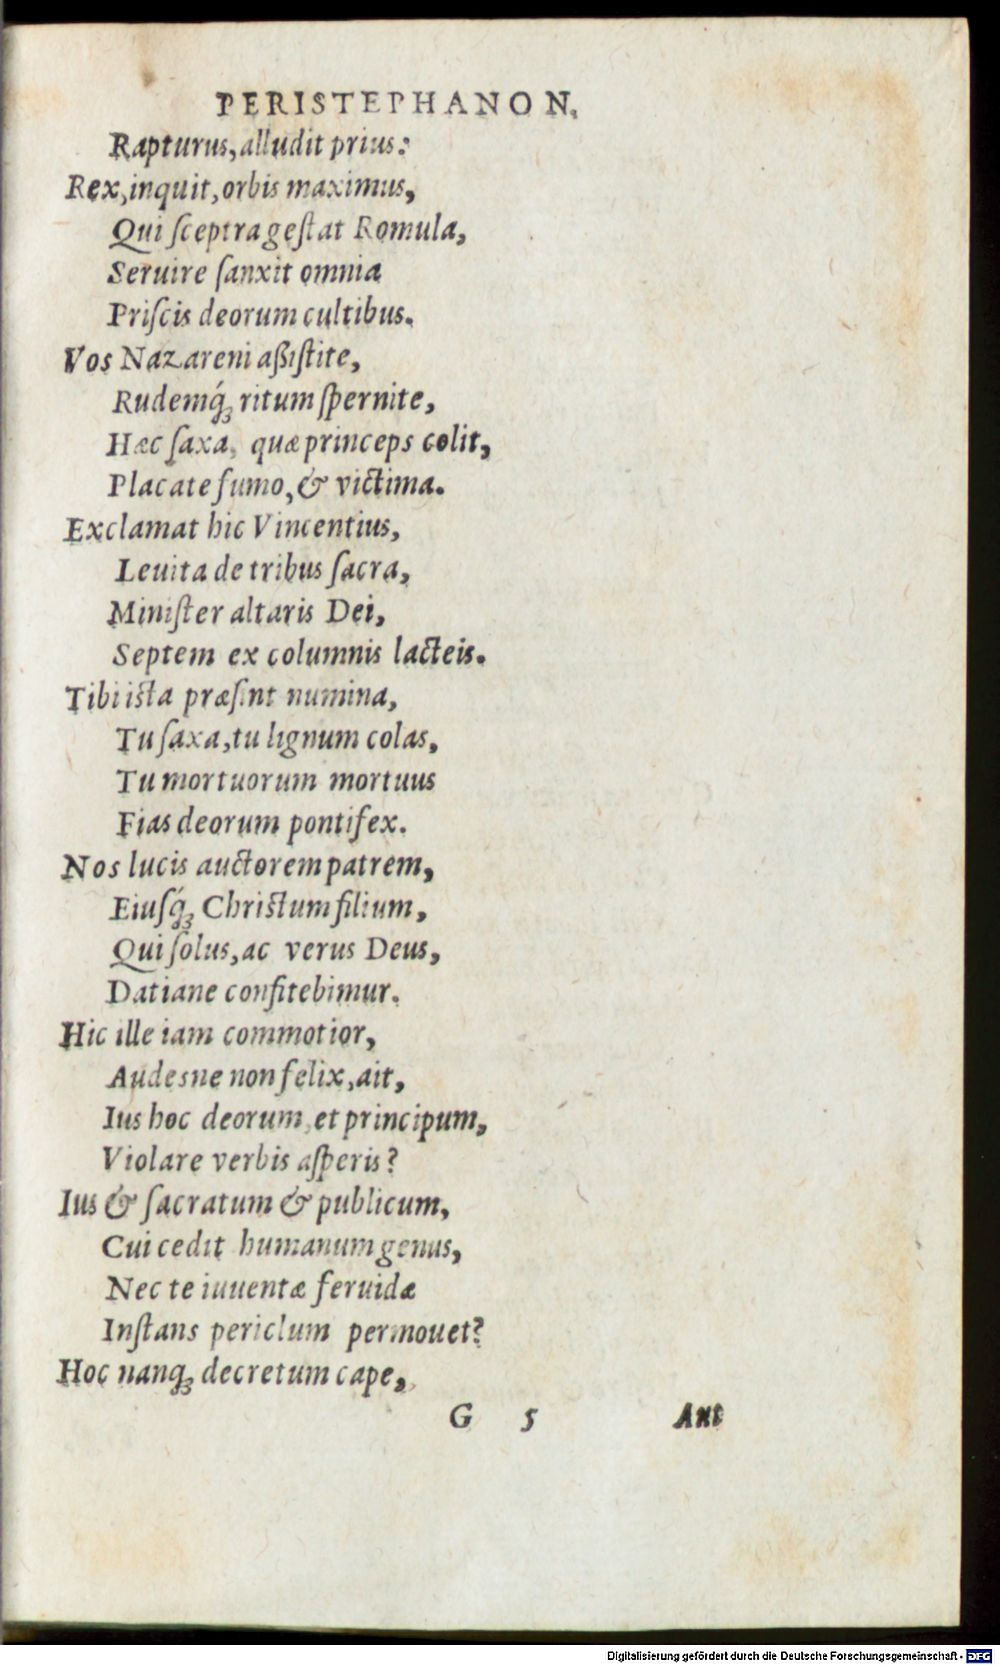 PERISTEPHANON.
Rapturus, alludit prius:
Rex, inquit, orbis maximus,
Qui ſceptra geſtat Romula,
Seruire ſanxit omnia
Priſcis deorum cultibus.
Vos Nazareni aßiſtite,
Rudemq́ꝫ ritum ſpernite,
Hæc ſaxa, quæ princeps colit,
Placate fumo, & victima.
Exclamat hic Vincentius,
Leuita de tribus ſacra,
Miniſter altaris Dei,
Septem ex columnis lacteis.
Tibi iſta præſint numina,
Tu ſaxa, tu lignum colas,
Tu mortuorum mortuus
Fias deorum pontifex.
Nos lucis auctorem patrem,
Eiuſq́ꝫ Chriſtum filium,
Qui ſolus, ac verus Deus,
Datiane confitebimur.
Hic ille iam commotior,
Audesne non felix, ait,
Ius hoc deorum, et principum,
Violare verbis aſperis?
Ius & ſacratum & publicum,
Cui cedit humanum genus,
Nec te iuuentæ feruidæ
Inſtans periclum permouet?
Hoc nanqꝫ decretum cape,
G 5 Aut
Digitalisierung gefördert durch die Deutsche Forschungsgemeinschaft - DFG